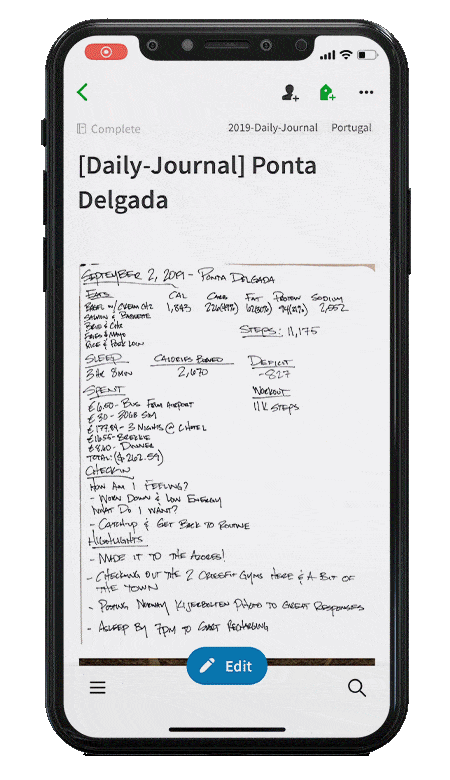 Complete
2019-Daily-Journal Portugal
[Daily-Journal] Ponta
Delgada
SEPTEMBER 2, 2019 - PONTA DELGADA
EATS CAL CARB FAT PROTEIN SODIUM
BAGEL W/ CREAM CHZ 1,843 62(30%) 94(21%) 2,552
SALMON & BAGUETTE
BRIE & CHZ
FRIES & MAYO
RICE & PORK LOIN
STEPS: 11,175
SLEEP CALORIES BURNED DEFICIT
3 HR 8 MIN 2,670 -827
SPENT WORKOUT
€6.50 - BUS FROM AIRPORT 11K STEPS
€30 - 30GB SIM
€177.89 - 3 NIGHTS @ HOTEL
€16.55 - BREKKIE
€8.40 - DINNER
TOTAL: ($262.59)
CHECK-IN
HOW AM I FEELING?
- WORN DOWN & LOW ENERGY
WHAT DO I WANT?
- CATCH-UP & GET BACK TO ROUTINE
HIGHLIGHTS
- MADE IT TO THE AZORES!
- CHECKING OUT THE 2 CROSSFIT GYMS HERE & A BIT OF
THE TOWN
- POSTING NORWAY KJERBOLTEN PHOTO TO GREAT RESPONSES
- ASLEEP BY 7PM TO START RECHARGING
Edit